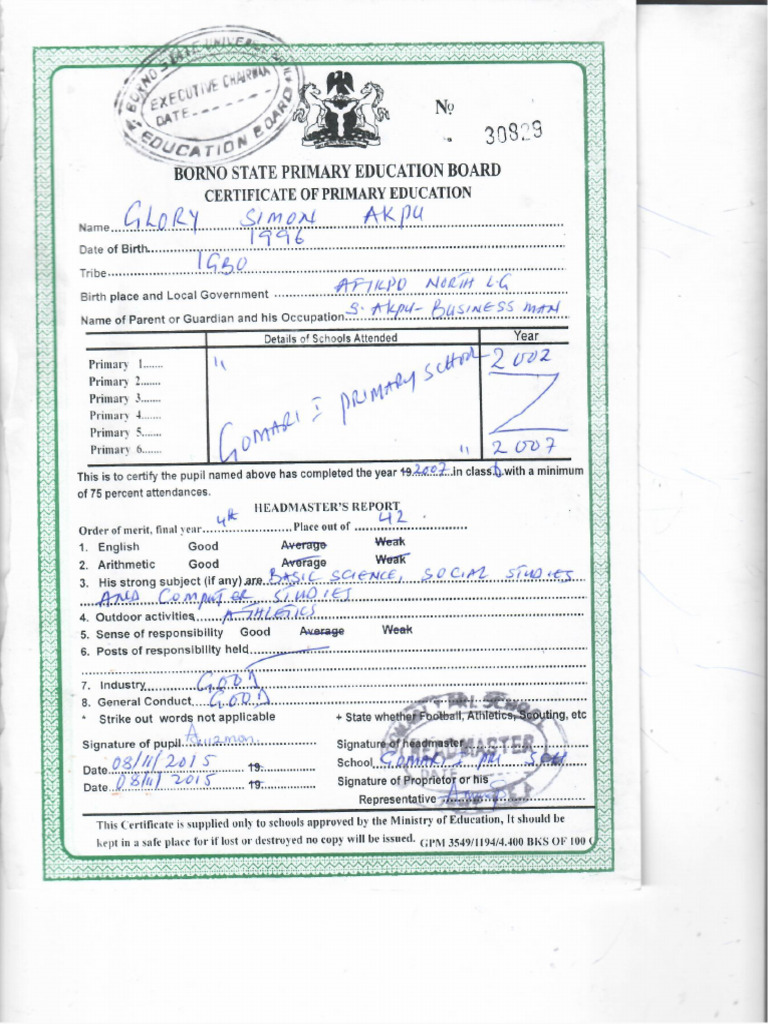 BORNO STATE UNIVERSAL
EXECUTIVE CHAIRMAN
DATE
EDUCATION BOARD
No 30829
BORNO STATE PRIMARY EDUCATION BOARD
CERTIFICATE OF PRIMARY EDUCATION
Name GLORY SIMON AKPU
Date of Birth 1996
Tribe IGBO
Birth place and Local Government AFIKPO NORTH LG
Name of Parent or Guardian and his Occupation S. AKPU - BUSINESS MAN
Details of Schools Attended Year
Primary 1....... " 2002
Primary 2.......
Primary 3.......
Primary 4.......
GOMARI I PRIMARY SCHOOL
Primary 5.......
Primary 6....... " 2007
This is to certify the pupil named above has completed the year 19 2007 in class 6 with a minimum
of 75 percent attendances.
HEADMASTER'S REPORT
Order of merit, final year 4th Place out of 42
1. English Good Average Weak
2. Arithmetic Good Average Weak
3. His strong subject (if any) are BASIC SCIENCE, SOCIAL STUDIES
AND COMPUTER STUDIES
4. Outdoor activities ATHLETICS
5. Sense of responsibility Good Average Weak
6. Posts of responsibility held
7. Industry GOOD
8. General Conduct GOOD
* Strike out words not applicable + State whether Football, Athletics, Scouting, etc
Signature of pupil Signature of headmaster
HEADMASTER
Date 08/11/2015 19 School GOMARI I PRI SCH
DATE
Date 08/11/2015 19 Signature of Proprietor or his
Representative
This Certificate is supplied only to schools approved by the Ministry of Education, It should be
kept in a safe place for if lost or destroyed no copy will be issued. GPM 3549/1194/4.400 BKS OF 100